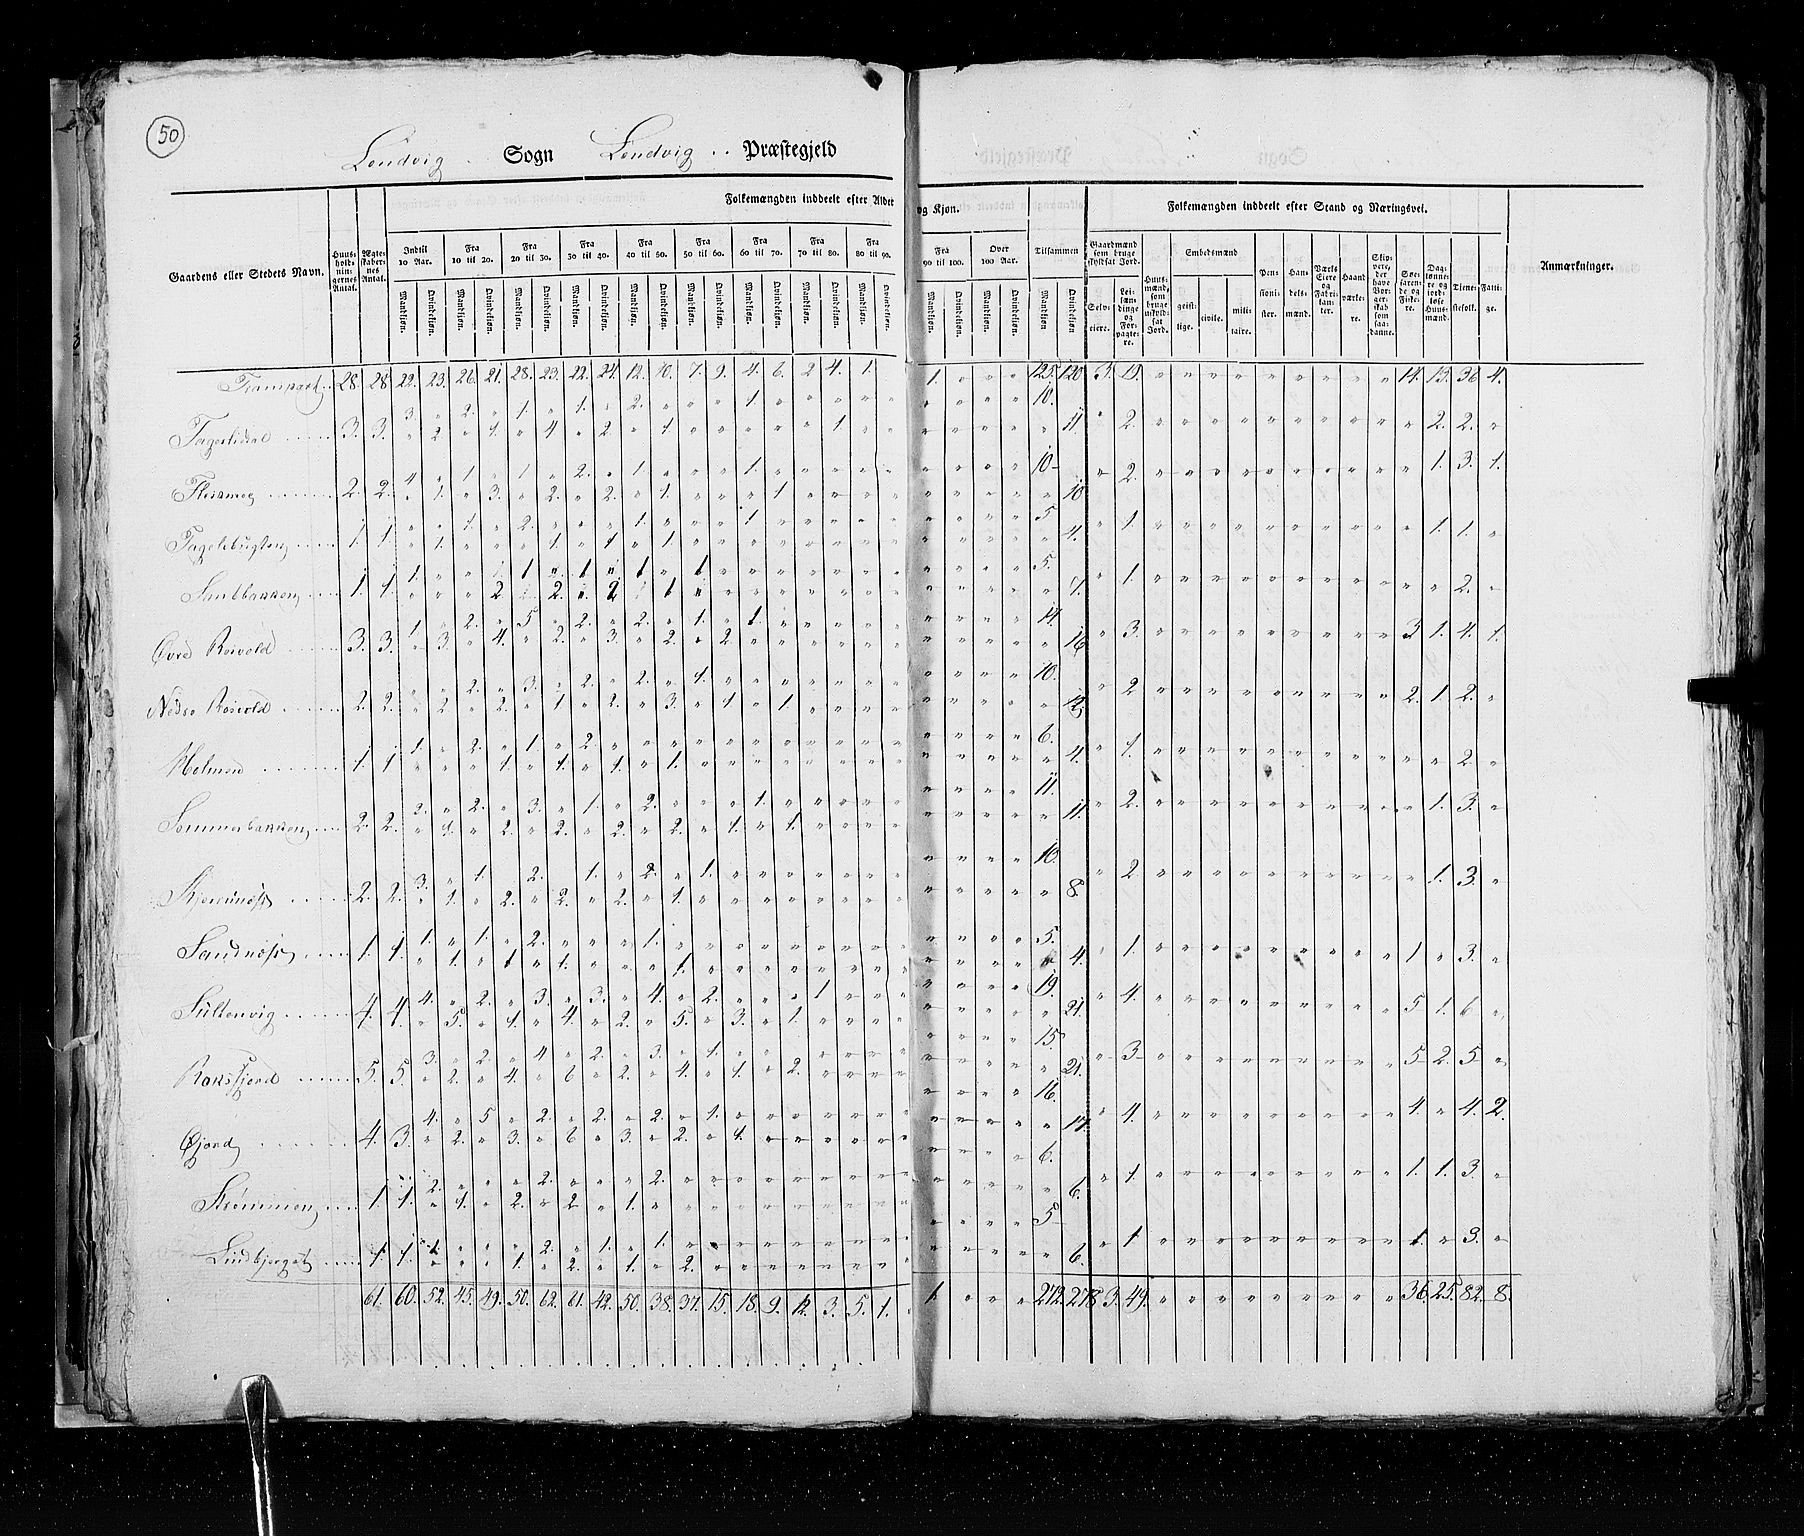 50
Landvig Sogn Landvig Præstegjeld
Gaardens eller Stedets Navn. Huus-hold-nin-gernes Antal. Ægte-skaber-nes Antal. Folkemængden inddeelt efter Alder og Kjøn. Folkemængden inddeelt efter Stand og Næringsvei. Anmærkninger.
Indtil 10 Aar. Fra 10 til 20. Fra 20 til 30. Fra 30 til 40. Fra 40 til 50. Fra 50 til 60. Fra 60 til 70. Fra 70 til 80. Fra 80 til 90. Fra 90 til 100. Over 100 Aar. Tilsammen
Mandkjøn. Qvindekjøn.
Gaardmænd som bruge skyldsat Jord. Selveiere. Leilændinge og Forpagtere. Huusmænd, som bruge uskyldsat Jord. Embedsmænd geistlige. civile. militaire. Pensionister. Handelsmænd. Værks Eiere og Fabrikanter. Haandværkere. Skippere, der have Borgerskab som saadanne. Søefarende og Fiskere. Daglønnere og jordløse Huusmænd. Tienestefolk. Fattige.
Transport 28. 28. 22. 23. 26. 21. 28. 23. 22. 24. 12. 10. 7. 9. 4. 6. 2 4. 1. 1. " " " 125. 120 3. 19. " " " " " " " " " 14. 13. 36 4.
3. " 2. " 1. " 1. " 2. " " " 1. " " " " " " " " " 10.
3. 3. " 2 " 1. " 4 " 2. " 1 " " " " " 1 " " " " " " " 11. " 2. " " " " " " " " " " 2. 2. "
4 " 1 " 1 " 2. " 1. " " " 1. " " " " " " " " " 10
2. 2. " 1. " 3. " 2. " 2. " 1. " " " 1 " " " " " " " " " 10 " 2. " " " " " " " " " " 1. 3. 1.
" " 1. " 2. " " " 1. " " " 1. " " " " " " " " " 5
1. 1. " 1. " " " 1. " 1. " 1. " " " " " " " " " " " " " 4. " 1. " " " " " " " " " " 1. 1. "
Sandbakken 1. 1 1. " " " 1 " 1 " 1 " 1 " " " " " " " " " " " 5.
" " " 2 " 2. " 2 " 1 " " " " " " " " " " " " " 7. " 1. " " " " " " " " " " " 2. "
Øvre Roivold 3. 3. 1. " 2. " 5 " 2. " 2. " 1. " 1. " " " " " " " " " 14.
" 3. " 4. " 2. " 3. " 2. " 2. " " " " " " " " " " " 16. " 3. " " " " " " " " " 3 1. 4. 1.
Nedre Roivold 2. 2. " " 2. " 3. " 2. " 2. " 1. " " " " " " " " " " " 10.
" 2 " 2. " 1 " 2. " 3. " 1 " 1. " " " " " " " " " 12. " 2 " " " " " " " " " 2. 1. 2. "
Holmen 1. 1 1. " 2. " 1. " 2. " " " " " " " " " " " " " " " 6.
" " " 1. " 1. " 1. " 1. " " " " " " " " " " " " " 4. " 1. " " " " " " " " " " " 2. "
Sommerbakken 2. 2. 2. " 2. " 3. " 1. " 2. " " " 1. " " " " " " " " " 11.
" 1. " 2. " 2. " 2. " 2. " 1. " 1. " " " " " " " " " 11. " 2. " " " " " " " " " " 1. 3. "
2. 2. 3. " 1. " 2. " 1. " 2. " 1. " " " " " " " " " " " 10.
" 1. " 2. " 2. " 2. " 1. " " " " " " " " " " " " " 8. " 2. " " " " " " " " " " 1. 3. "
Sandnæs 1. 1. 1. " 1. " 2. " " " 1. " " " " " " " " " " " " " 5.
" 1. " 1 " 1. " " " 1. " " " " " " " " " " " " " 4. " 1. " " " " " " " " " 1 " 3. "
Sültenvig 4. 4. 4. " 2. " 3. " 3. " 4. " 2. " " " 1 " " " " " " " 19.
" 5. " 1. " 4. " 2. " 5. " 3. " 1. " " " " " " " " " 21. " 4. " " " " " " " " " 5 1. 6 "
5. 5. 3. " 2. " 4 " 2. " 3. " 1. " " " " " " " " " " " 15.
" 2. " 4. " 6 " 2. " 4. " 1. " 2. " " " " " " " " " 21. " 3. " " " " " " " " " 5 2. 5 "
4. 3. 4. " 5 " 2. " 2. " 2. " 1. " " " " " " " " " " " 16.
" 2. " 3. " 6 " 3. " 2. " 1. " " " " " " " " " " " 17. " 4. " " " " " " " " " 4. " 4. 2.
Strømmen 1. 1. 2. " " " 2. " " " 2. " " " " " " " " " " " " " 6.
" 1. " 2. " 2 " 1. " " " " " " " " " " " " " " " 6. " 1. " " " " " " " " " 1. 1. 3. "
Lindbjerget 1. 1. 1. " " " 2. " 1. " 1. " " " " " " " " " " " " " 5
" " " 1. " 2. " 1. " 2. " " " " " " " " " " " " " 6. " 1 " " " " " " " " " 1. " 3. "
61. 60. 52. 45. 49. 50. 62. 61. 42. 50. 38. 37. 15. 18. 9. 12. 3. 5. 1. " 1. " " " 272. 278 3. 49. " " " " " " " " " 36. 25. 82. 8.